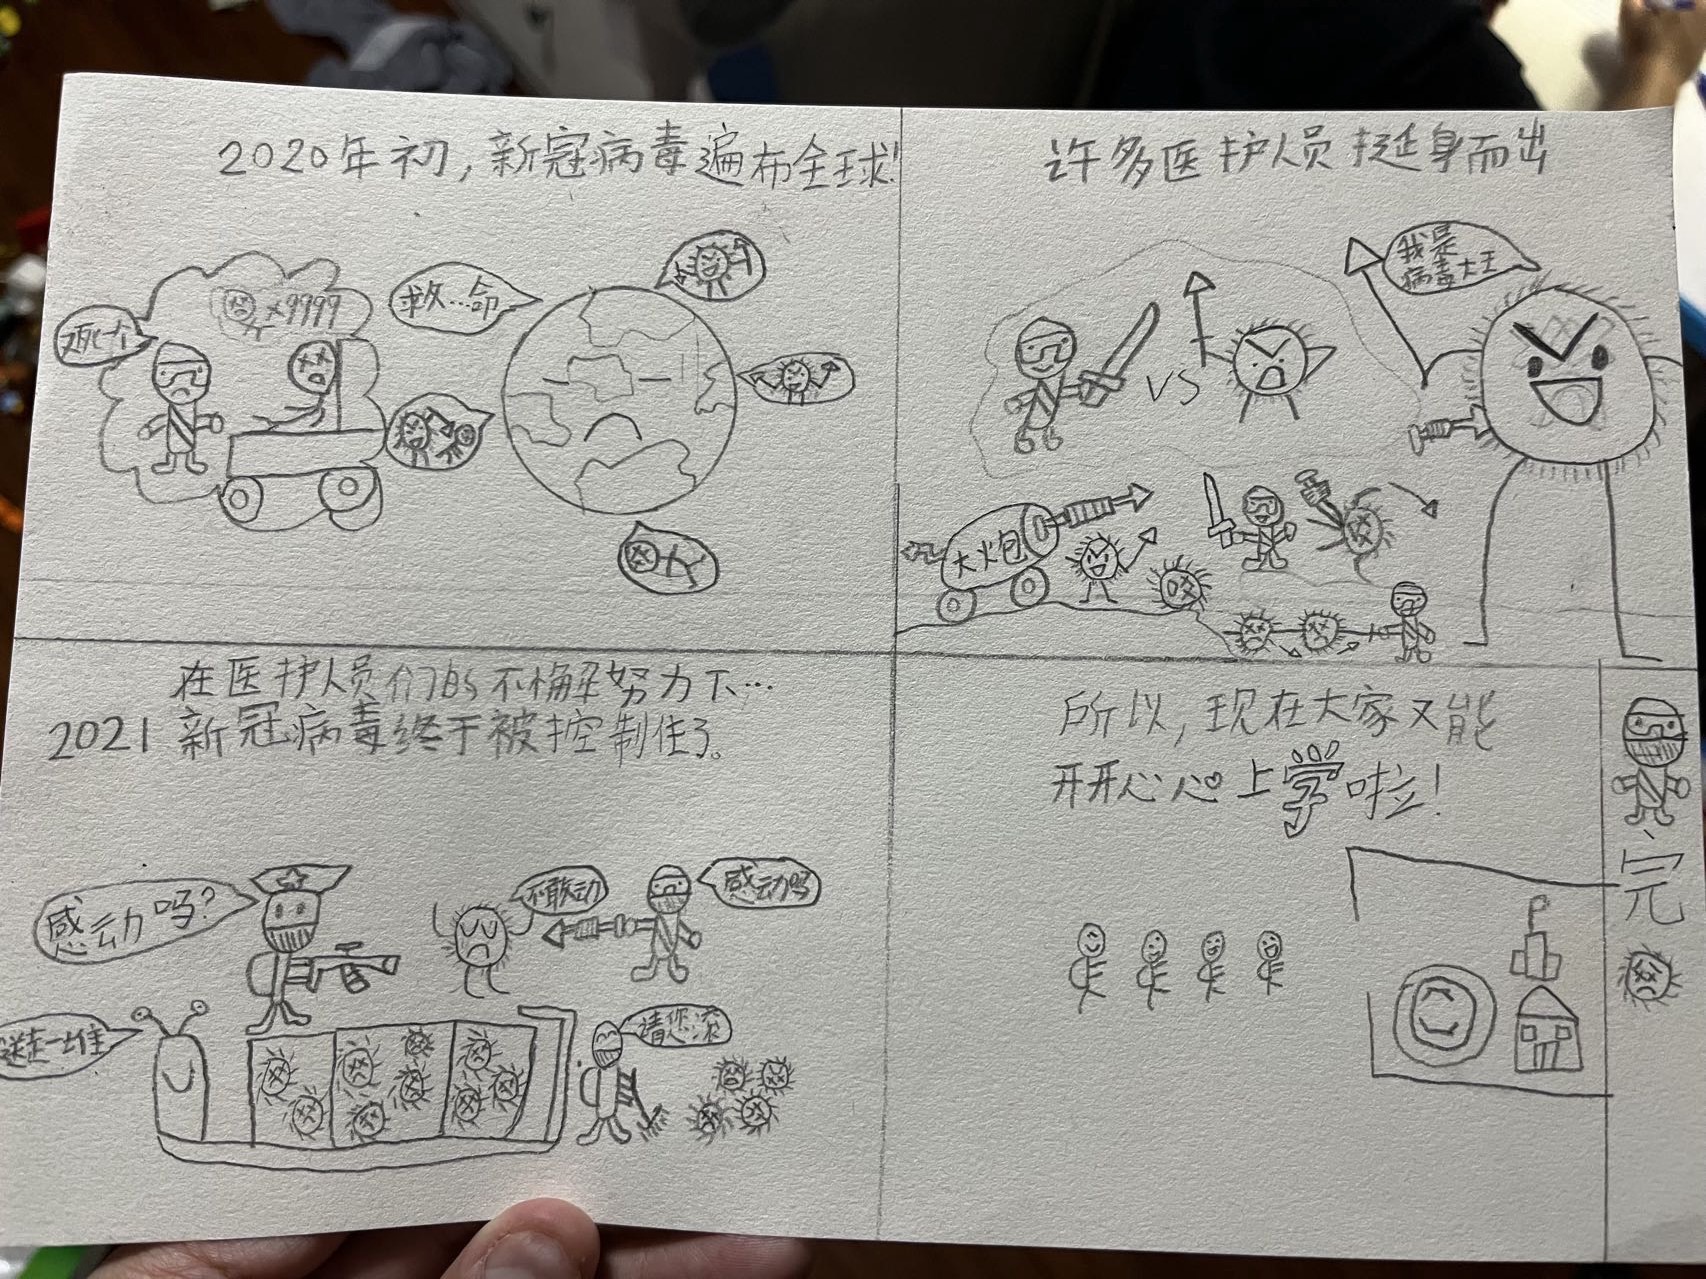 2020年初，新冠病毒遍布全球！
又死一个
×9999
求久...命
许多医护人员挺身而出
我是
病毒大王
VS
大火包
咬
在医护人员们的不懈努力下…
2021新冠病毒终于被控制住了。
感动吗？
不敢动
感动吗
送走一堆
请您滚
所以，现在大家又能
开开心心上学啦！
完